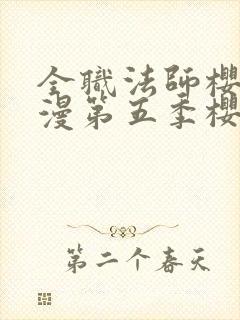 全職法師櫻
漫第五季櫻
第二个春天